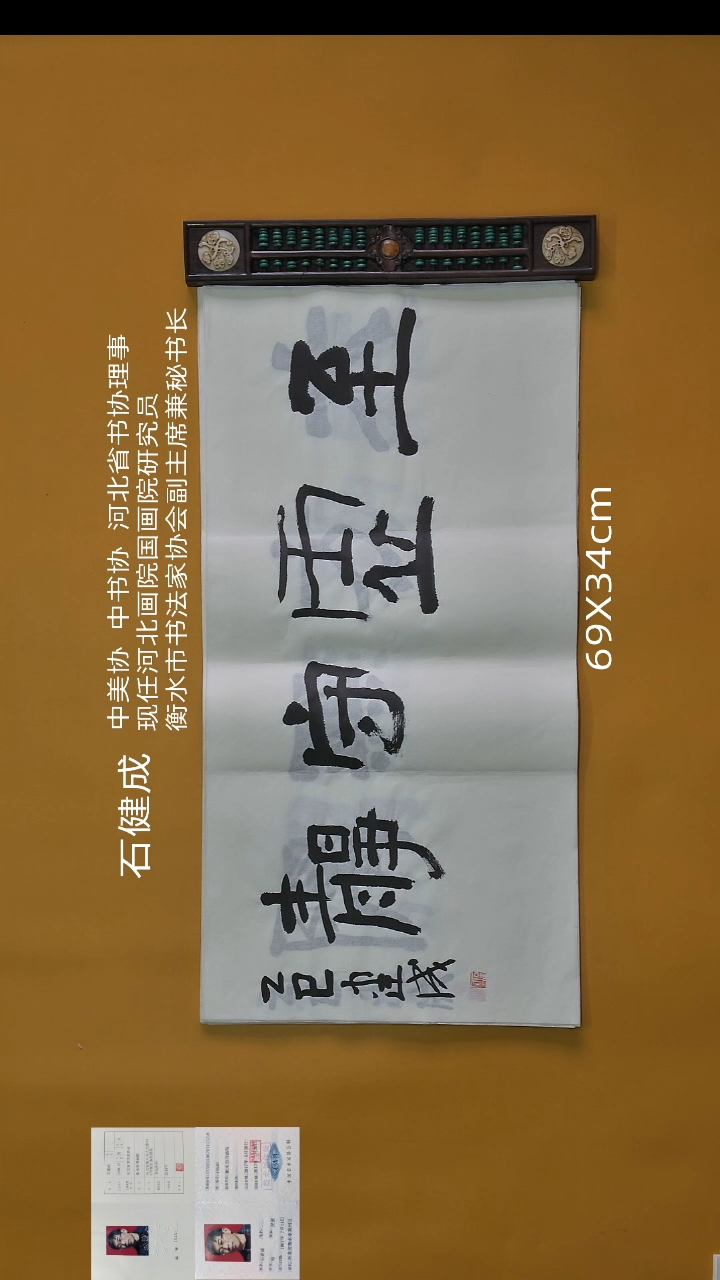 石健成
中美协 中书协 河北省书协理事
现任河北画院国画院研究员
衡水市书法家协会副主席兼秘书长
至虚守靜
乙巳健成
69X34cm